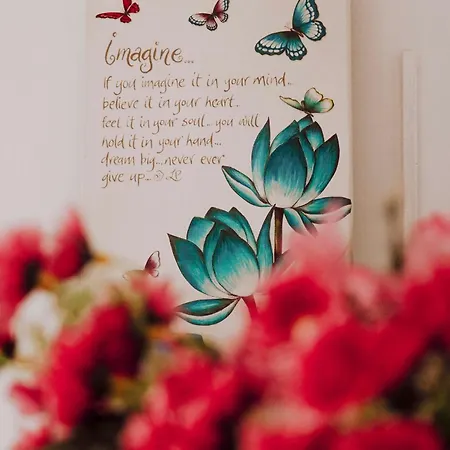 imagine...
If you imagine it in your mind...
believe it in your heart..
feel it in your soul... you will
hold it in your hand...
dream big... never ever
give up...